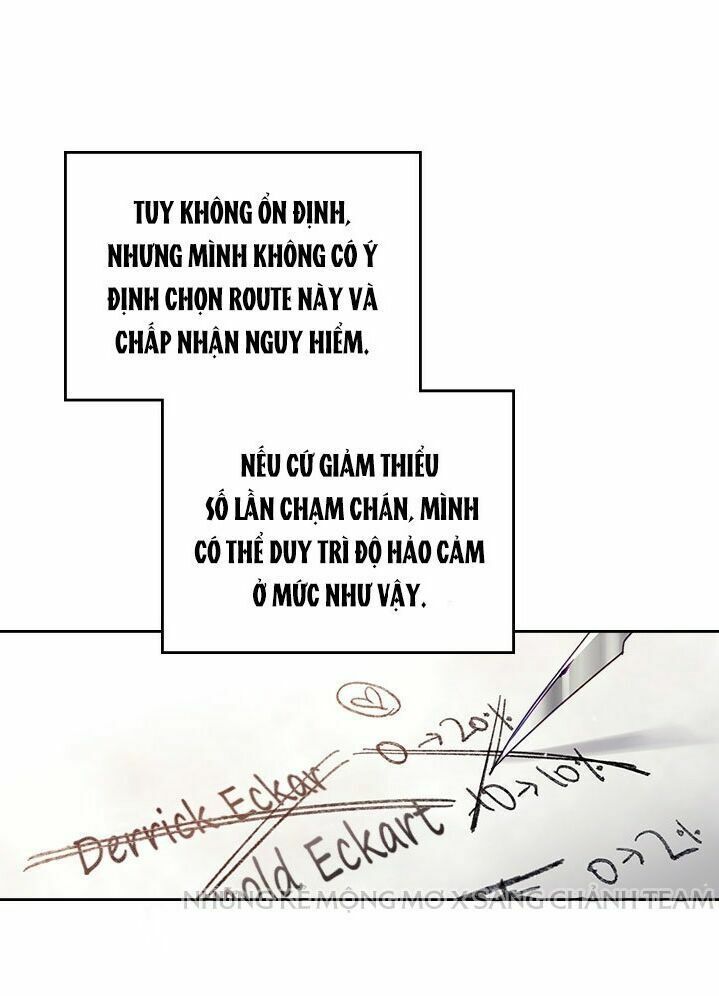 TUY KHÔNG ỔN ĐỊNH,
NHƯNG MÌNH KHÔNG CÓ Ý
ĐỊNH CHỌN ROUTE NÀY VÀ
CHẤP NHẬN NGUY HIỂM.
NẾU CỨ GIẢM THIỂU
SỐ LẦN CHẠM CHÁN, MÌNH
CÓ THỂ DUY TRÌ ĐỘ HẢO CẢM
Ở MỨC NHƯ VẬY.
0→20%
Derrick Eckar
10→10%
old Eckart
0→2%
NHỮNG KẺ MỘNG MƠ X SANG CHẢNH TEAM